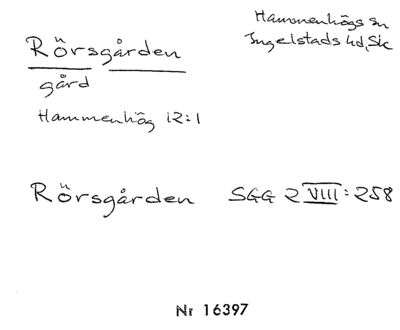 Hammenhögs sn
Ingelstads hd, Sk
Rörsgården
gård
Hammenhög 12:1
Rörsgården SGG 2 VIII:258
Nr 16397